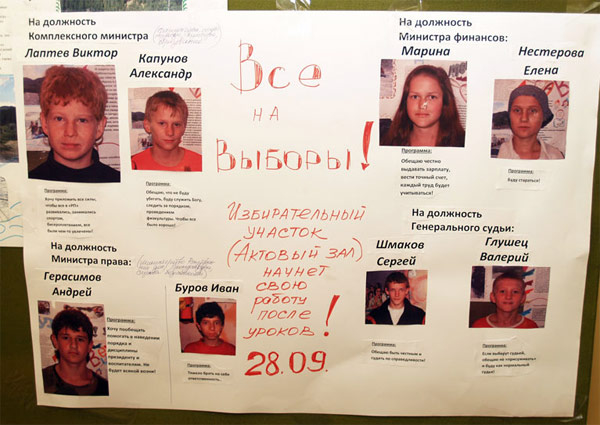 На должность
Комплексного министра
Лаптев Виктор
Капунов
Александр
Программа:
Хочу приложить все силы,
чтобы все в «РП»
развивались, занимались
спортом,
бисероплетением, все
были чем-то увлечены!
Программа:
Обещаю, что не буду
убегать, буду служить Богу,
следить за порядком,
проведением
физкультуры. Чтобы все
было хорошо!
На должность
Министра права:
Герасимов
Андрей
Программа:
Хочу пообещать
помогать в наведении
порядка и
дисциплины
президенту и
воспитателям. Не
будет всякой возни!
Буров Иван
Программа:
Тяжело брать на себя
ответственность.
Все
на
Выборы!
Избирательный
участок
(Актовый зал)
начнет
свою
работу
после
уроков!
28.09.
На должность
Министра финансов:
Марина
Нестерова
Елена
Программа:
Обещаю честно
выдавать зарплату,
вести точный счет,
каждый труд будет
учитываться!
Программа:
Буду стараться!
На должность
Генерального судьи:
Шмаков
Сергей
Глушец
Валерий
Программа:
Обещаю быть честным и
судить по справедливости!
Программа:
Если выберут судьей,
обещаю не
и буду как нормальный
судья!